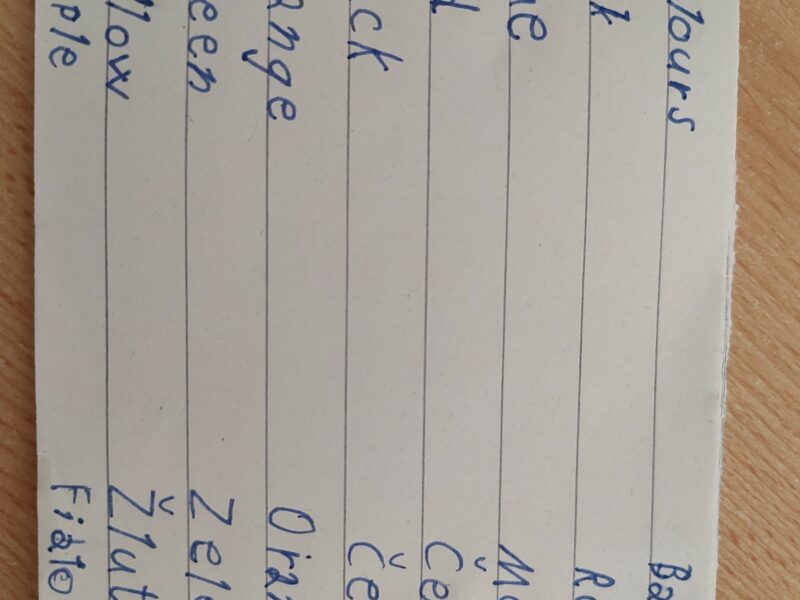 lours Ba
k Rů
ue Mo
d Če
ck Če
ange Oran
een Zele
llow Žlut
ple Fialo